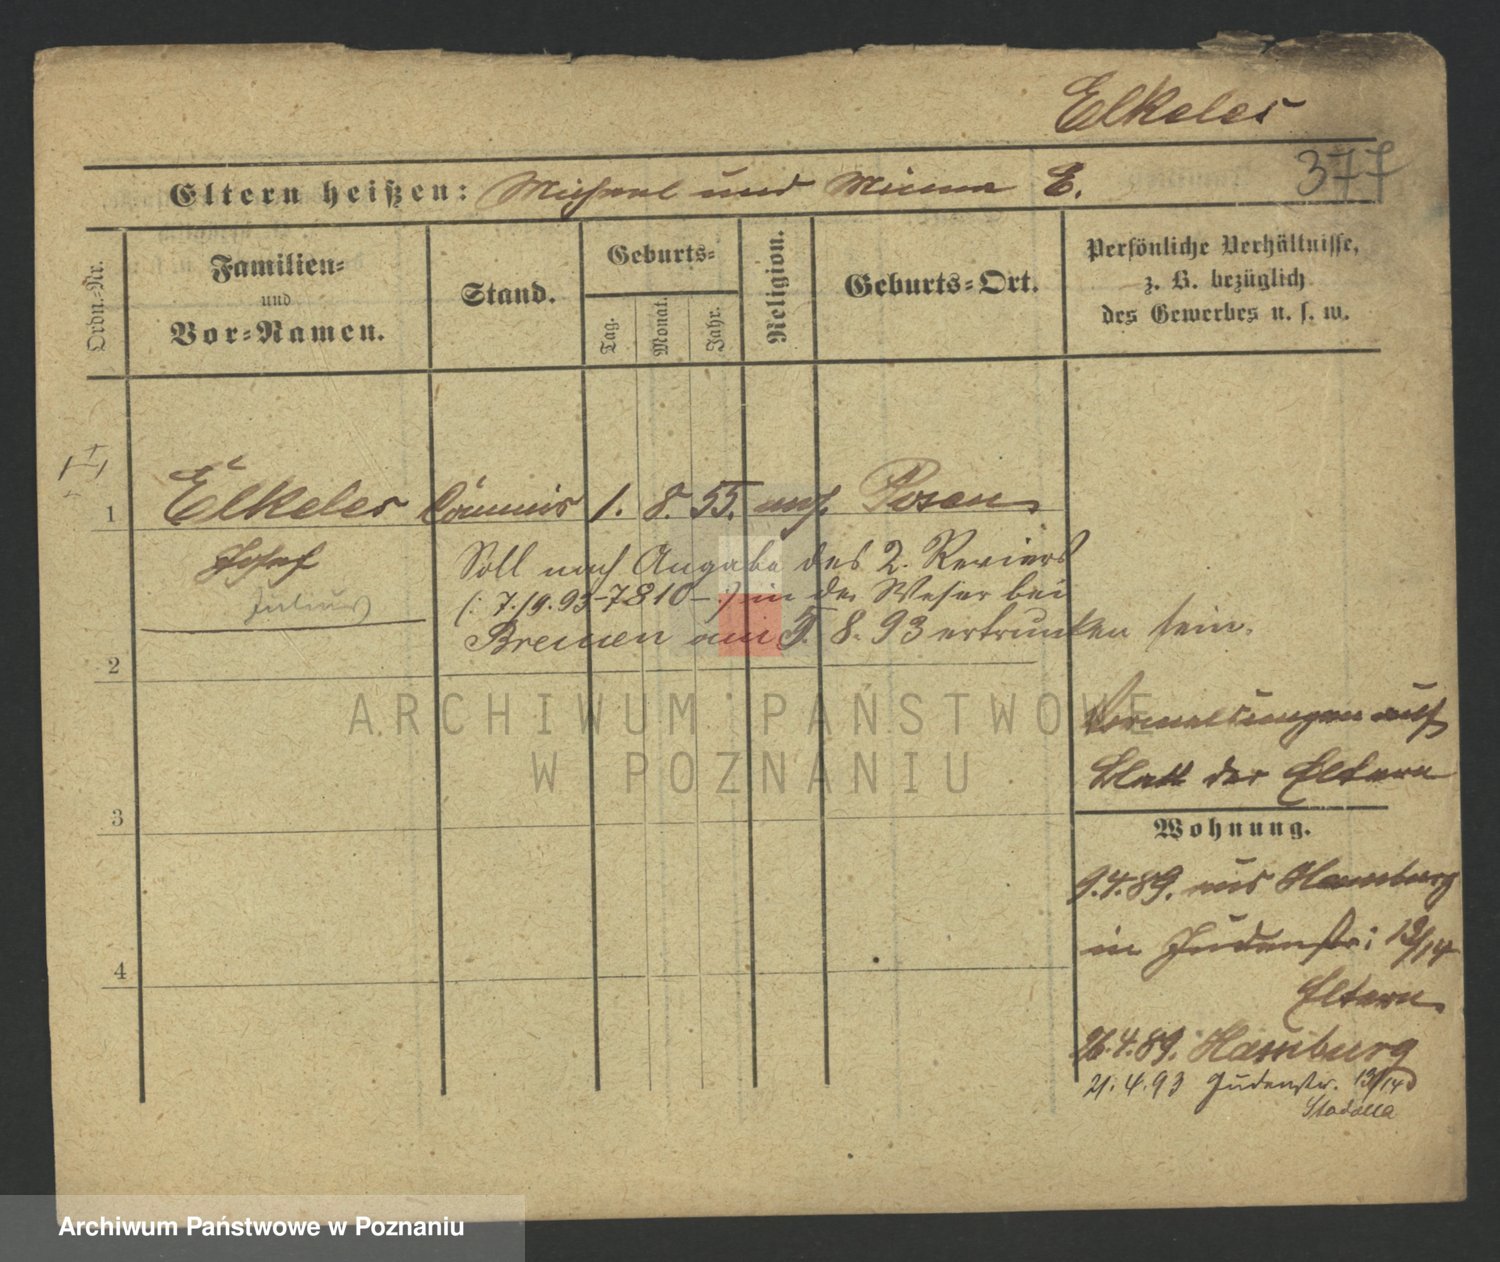 Elkeles
377
Eltern heißen: Michael und Minna E.
Ordn.-Nr.
Familien-
und
Vor-Namen.
Stand.
Geburts-
Tag.
Monat.
Jahr.
Religion.
Geburts-Ort.
Persönliche Verhältnisse,
z. B. bezüglich
des Gewerbes u. s. w.
1 Elkeles Commis 1. 8. 55. mos. Posen
Josef
Julius
Soll nach Angabe des 2. Reviers
(: 7./9. 93 - 7810 - :) in der Weser bei
Bremen am 5. 8. 93 ertrunken sein.
2
3
4
Bemerkungen auf
Blatt der Eltern
Wohnung.
9.4.89. aus Hamburg
in Judenstr: 13/14
Eltern
26.4.89. Hamburg
21.4.93 Judenstr. 13/14
ARCHIWUM PAŃSTWOWE
W POZNANIU
Archiwum Państwowe w Poznaniu